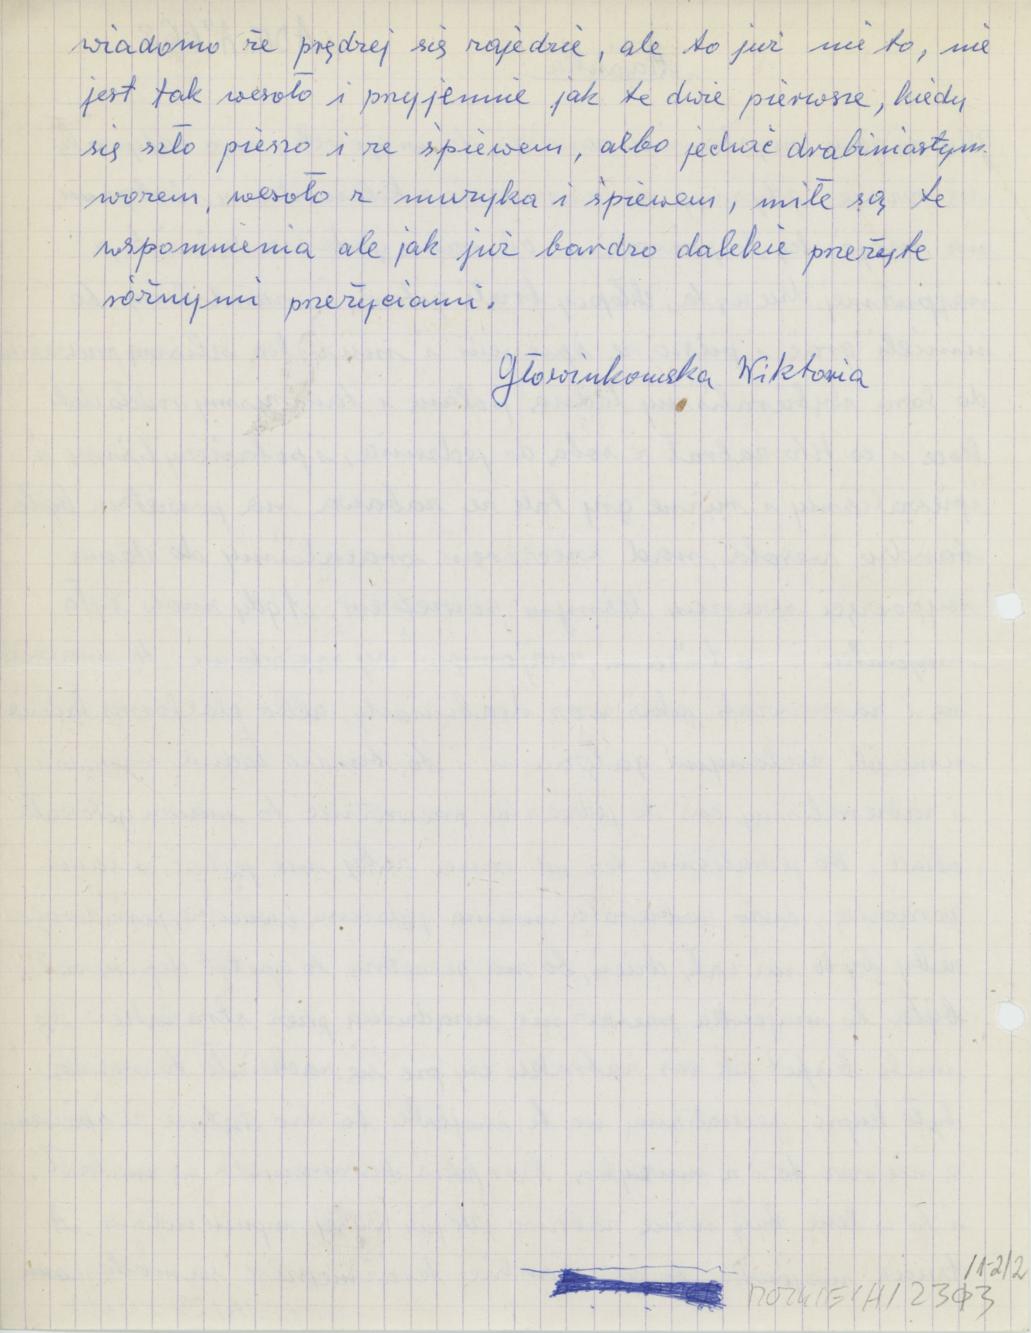 wiadomo że prędzej się zajedzie, ale to już nie to, nie
jest tak wesoło i przyjemnie jak te dwie pierwsze, kiedy
się szło pieszo i ze śpiewem, albo jechać drabiniastym
wozem, wesoło z muzyka i śpiewem, miłe są te
wspomnienia ale jak już bardzo dalekie przeżyte
różnymi przeżyciami.
Głowinkowska Wiktoria
11-2/2